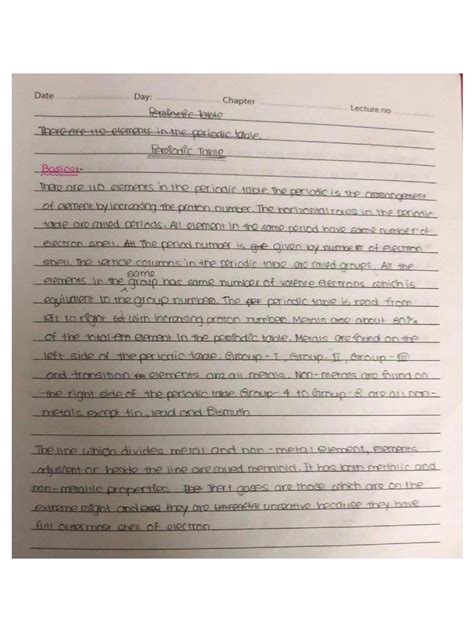 Date Day: Chapter Lecture no
Periodic Table
There are 110 elements in the periodic table.
Periodic Table
Basics:-
There are 110 elements in the periodic table. The periodic is the arrangement
of element by increasing the proton number. The horizontal rows in the periodic
table are called periods. All element in the same period have same number of
electron shell. All The period number is given by number of electron
shell. The verticle columns in the periodic table are called groups. All the
same
elements in the group has same number of valence electrons which is
equivalent to the group number. The periodic table is read from
left to right with increasing proton number. Metals are about 80%
of the total element in the periodic table. Metals are found on the
left side of the periodic table. Group-I, Group-II, Group-III
and transition elements are all metals. Non-metals are found on
the right side of the periodic table Group-4 to Group-8 are all non-
metals except tin, lead and Bismuth
The line which divides metal and non-metal element, elements
adjacent or beside the line are called It has both metallic and
non-metallic properties. The Inert gases are those which are on the
extreme right and they are unreactive because they have
full outermost shell of electron.